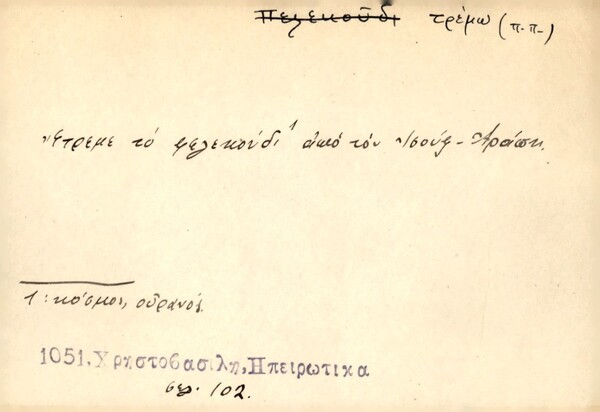 Πελεκοῦδι τρέμω (π.π.)
Ἔτρεμε τό φελεκούδι¹ ἀπό τόν Ἰσούφ-Ἀράπη.
1: κόσμος, οὐρανός.
1051. Χρηστοβασίλη, Ηπειρωτικα
σελ. 102.